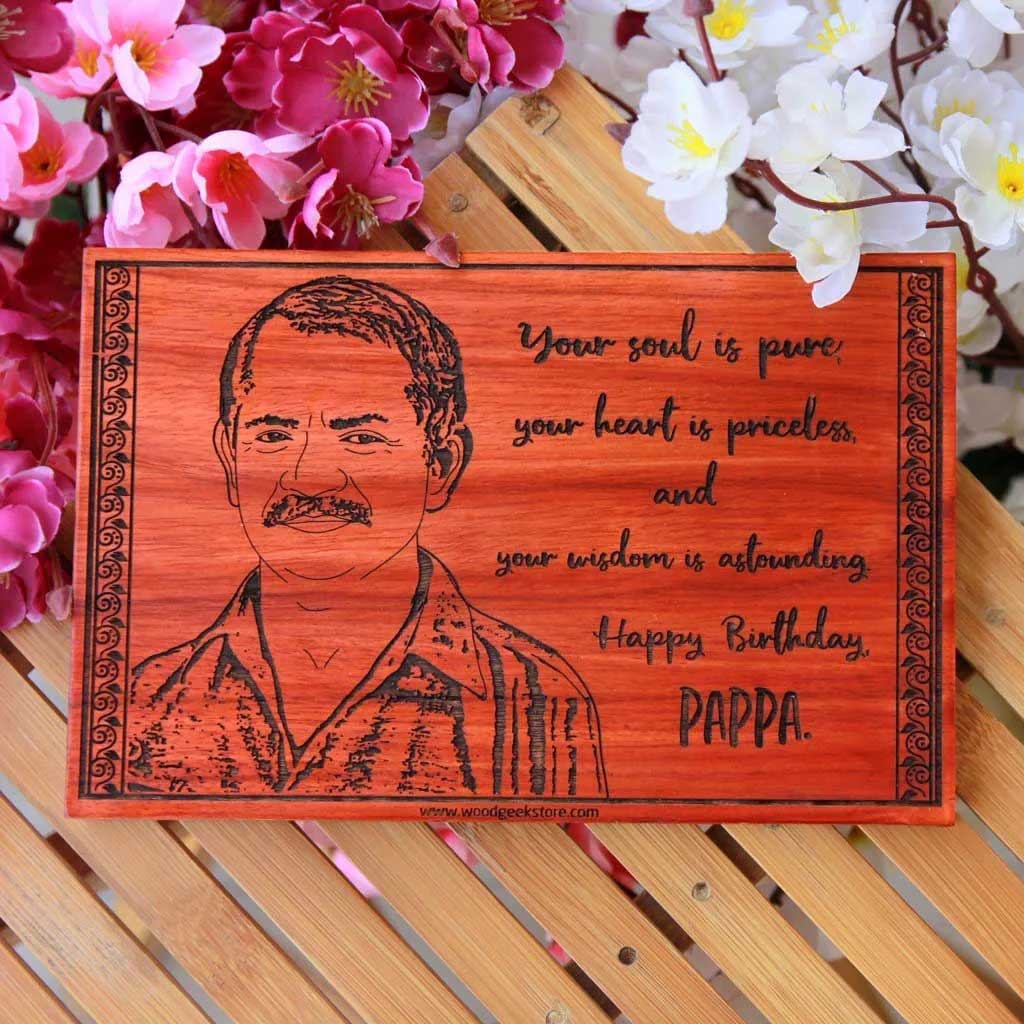 Your soul is pure,
your heart is priceless,
and
your wisdom is astounding.
Happy Birthday,
PAPPA.
www.woodgeekstore.com